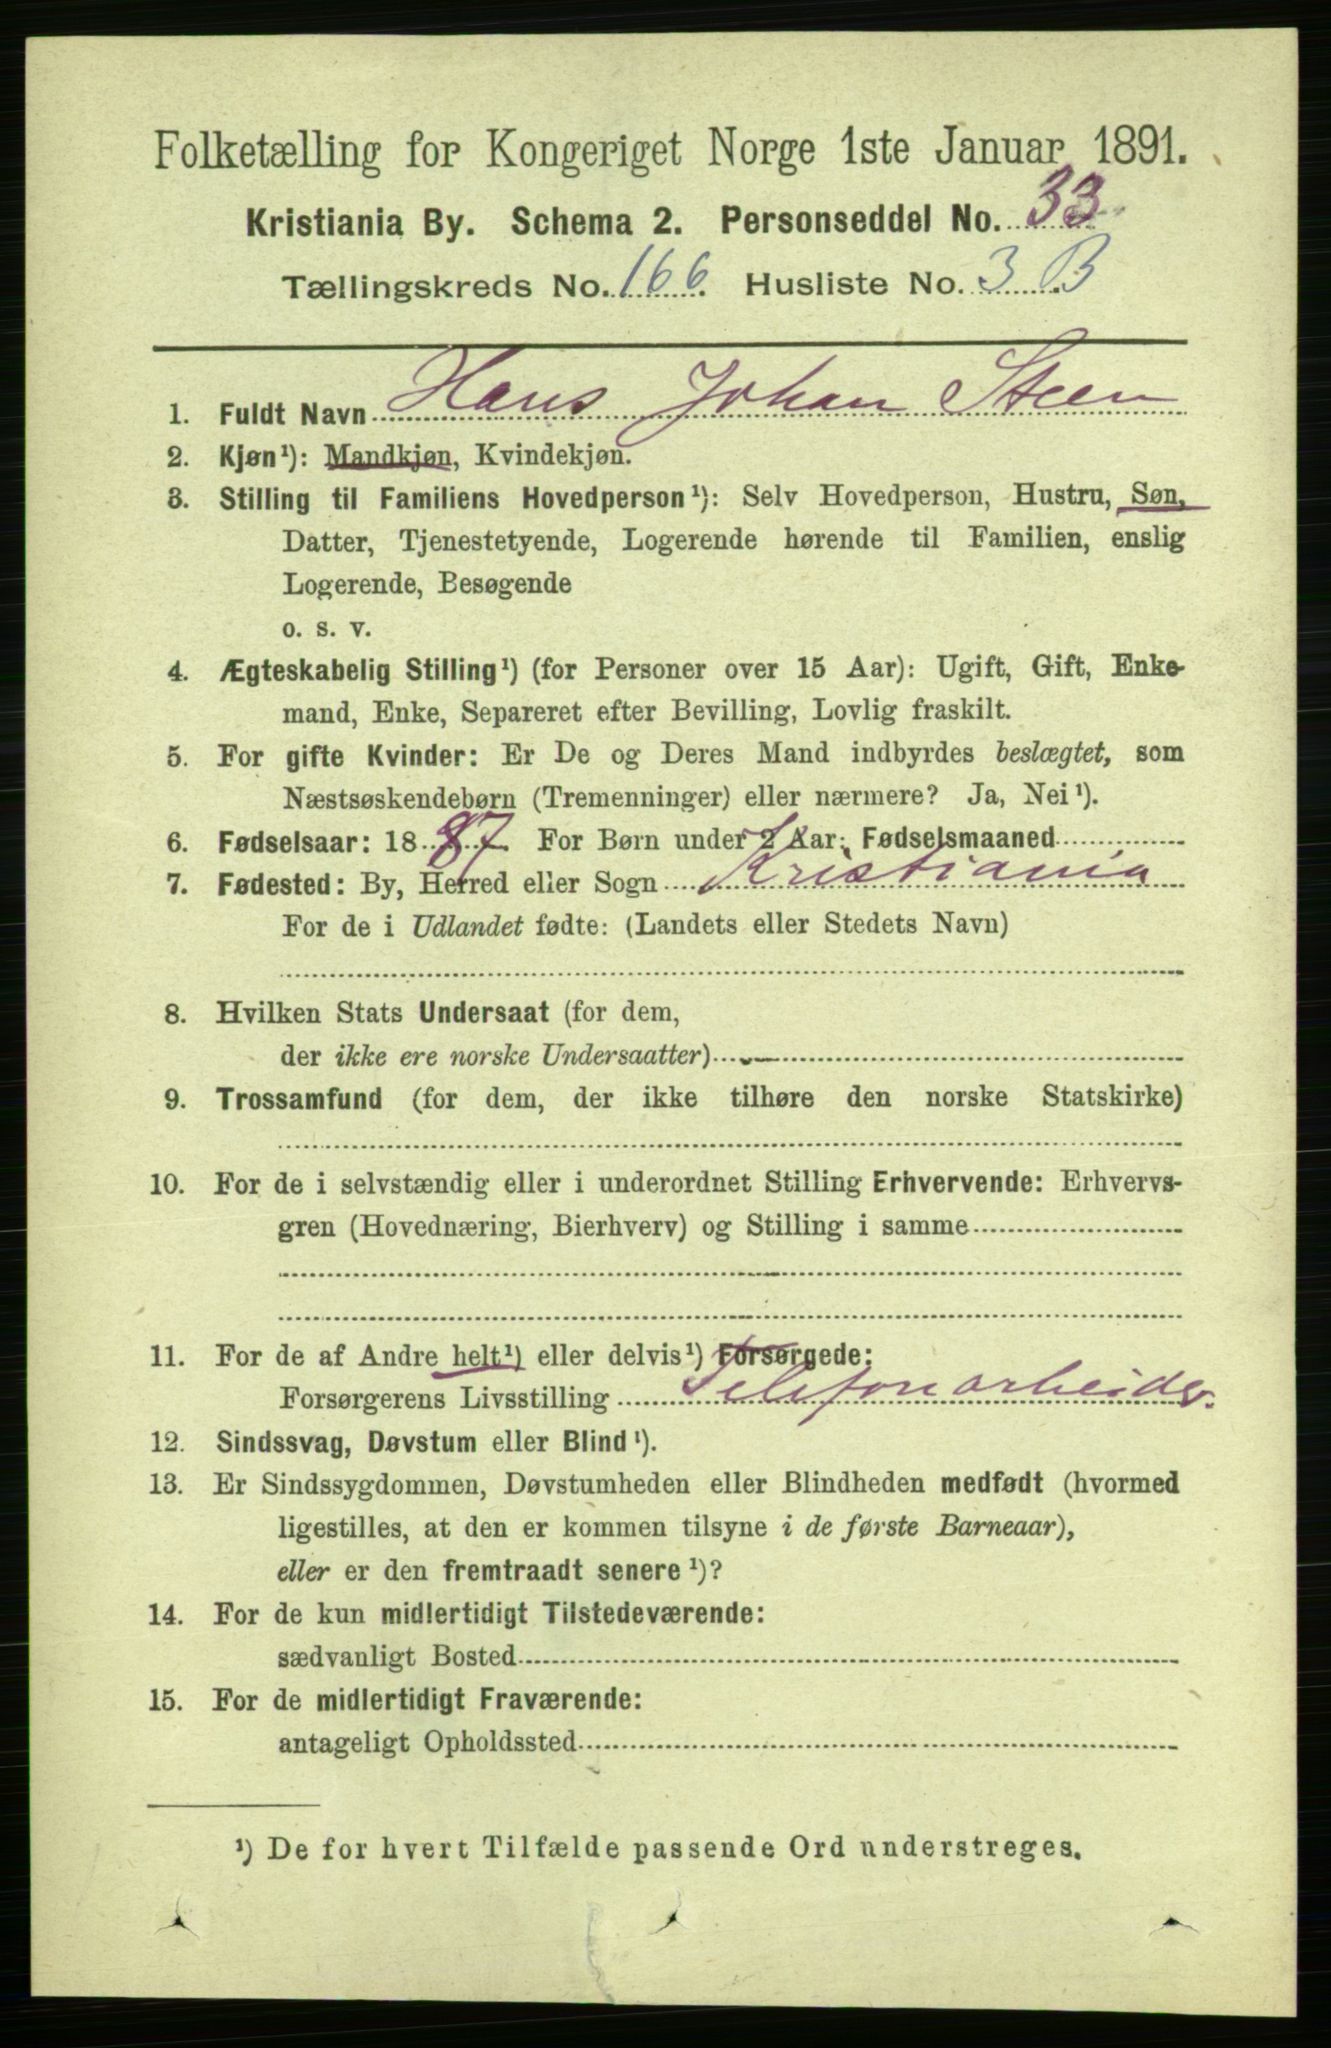 Folketælling for Kongeriget Norge 1ste Januar 1891.
Kristiania By. Schema 2. Personseddel No. 33
Tællingskreds No. 166. Husliste No. 3 B
1. Fuldt Navn Hans Johan Steen
2. Kjøn¹): Mandkjøn, Kvindekjøn.
3. Stilling til Familiens Hovedperson¹): Selv Hovedperson, Hustru, Søn,
Datter, Tjenestetyende, Logerende hørende til Familien, enslig
Logerende, Besøgende
o. s. v.
4. Ægteskabelig Stilling¹) (for Personer over 15 Aar): Ugift, Gift, Enke-
mand, Enke, Separeret efter Bevilling, Lovlig fraskilt.
5. For gifte Kvinder: Er De og Deres Mand indbyrdes beslægtet, som
Næstsøskendebørn (Tremenninger) eller nærmere? Ja, Nei¹).
6. Fødselsaar: 1887. For Børn under 2 Aar: Fødselsmaaned
7. Fødested: By, Herred eller Sogn Kristiania
For de i Udlandet fødte: (Landets eller Stedets Navn)
8. Hvilken Stats Undersaat (for dem,
der ikke ere norske Undersaatter)
9. Trossamfund (for dem, der ikke tilhøre den norske Statskirke)
10. For de i selvstændig eller i underordnet Stilling Erhvervende: Erhvervs-
gren (Hovednæring, Bierhverv) og Stilling i samme
11. For de af Andre helt¹) eller delvis¹) Forsørgede:
Forsørgerens Livsstilling Telefonarbeider.
12. Sindssvag, Døvstum eller Blind¹).
13. Er Sindssygdommen, Døvstumheden eller Blindheden medfødt (hvormed
ligestilles, at den er kommen tilsyne i de første Barneaar),
eller er den fremtraadt senere¹)?
14. For de kun midlertidigt Tilstedeværende:
sædvanligt Bosted
15. For de midlertidigt Fraværende:
antageligt Opholdssted
¹) De for hvert Tilfælde passende Ord understreges.